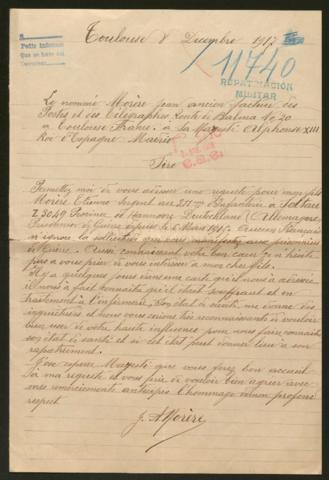 Toulouse 8 Decembre 1917
Petit
11740
REPATRIACIÓN
MILITAR
Le nommé Morère Jean ancien facteur des
Postes et des Télégraphes Route de Balma N° 20
à Toulouse France. à sa Majesté Alphonse XIII
Roi d'Espagne Madrid
Sire
Permettez moi de vous adresser une requête pour mon fils
Morère Etienne Sergent au 211me d'Infanterie à Soltau
Z 3049 Province de Hannovre Deutschland (Allemagne)
Prisonnier de Guerre depuis le 6 Mars 1916. Aucun Français
n'ignore la sollicitude que vous manifestez aux prisonniers
de Guerre. Aussi connaissant votre bon cœur j'ai la haute
à vous prier de vous intéresser à mon cher fils.
Il y a quelques jours dans une carte qu'il nous a adressée
il nous a fait connaître qu'il était souffrant et en
traitement à l'infirmerie, son état de santé me donne des
inquiétudes et nous vous serions très reconnaissants de vouloir
bien user de votre haute influence pour nous faire connaître
son état de santé et si cet état peut donner lieu à son
rapatriement.
J'ose espérer Majesté que vous ferez bon accueil
à ma requête et vous prie de vouloir bien agréer avec
mes remerciements anticipés l'hommage de mon profond
respect
J. Morère